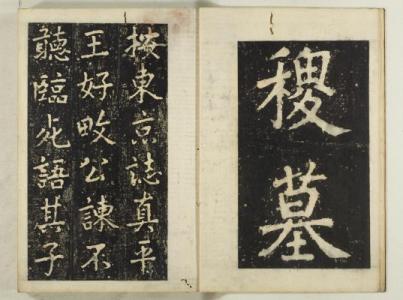 稷墓
按東京誌真平
王好畋公諫不
聽臨死語其子